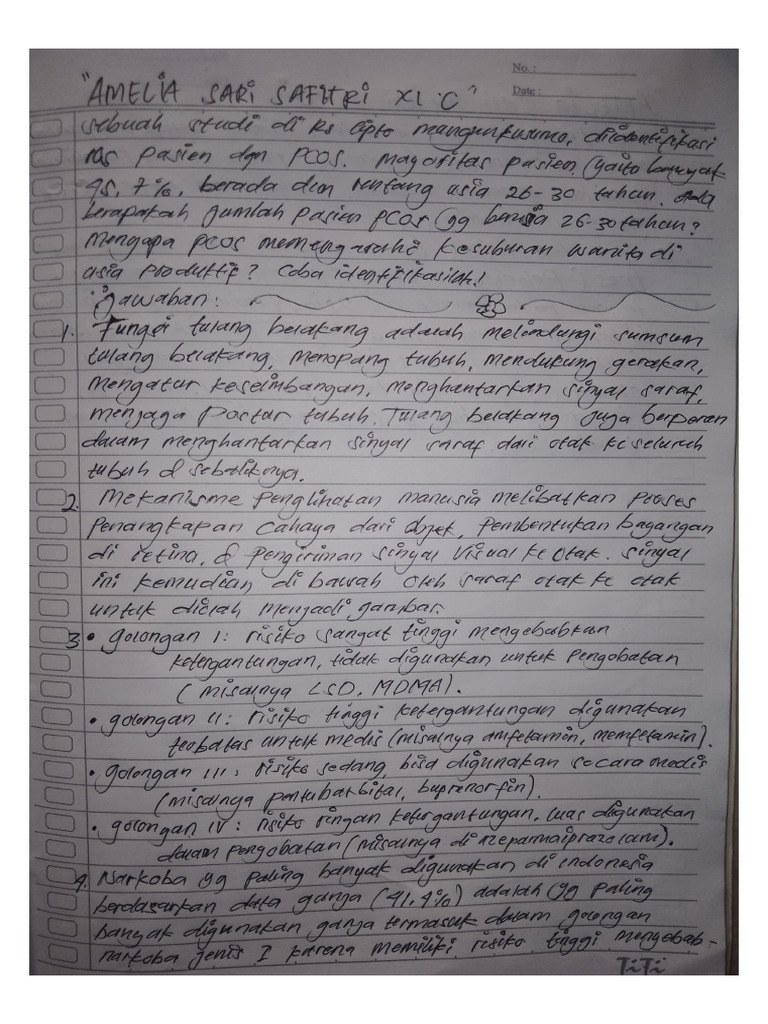 No. :
Date :
"AMELIA SARI SAFITRI XI.C"
sebuah studi di Rs Cipto mangunkusumo, diidentifikasi
105 pasien dgn PCOS. Mayoritas pasien, (yaito banyak
45,7%, berada dlm rentang usia 26-30 tahun.
berapakah jumlah pasien PCOS (yg berusia 26-30 tahun?
Mengapa PCOS memengaruhi kesuburan wanita di
usia produktif? Coba identifikasilah!
Jawaban:
1. Fungsi tulang belakang adalah melindungi sumsum
tulang belakang, menopang tubuh, mendukung gerakan,
mengatur keseimbangan, menghantarkan sinyal saraf,
menjaga Postur tubuh. Tulang belakang juga berperan
dalam menghantarkan sinyal saraf dari otak ke seluruh
tubuh d sebaliknya.
2. Mekanisme Penglihatan manusia melibatkan Proses
penangkapan cahaya dari objek, Pembentukan bayangan
di retina, & Pengiriman sinyal visual ke otak. Sinyal
ini kemudian di bawah oleh saraf otak ke otak
untuk diolah menjadi gambar.
3 • golongan I: risiko sangat tinggi mengebabkan
ketergantungan, tidak digunakan untuk Pengobatan
(misalnya LSD, MDMA).
• golongan II: risiko tinggi ketergantungan digunakan
terbatas untuk medis (misalnya amfetamin, memfetamin).
• golongan III: risiko sedang, bisa digunakan secara medis
(misalnya pentobarbital, buprenorfin).
• golongan IV: risiko ringan ketergantungan, luas digunakan
dalam pengobatan (misalnya
4. Narkoba yg paling banyak digunakan di Indonesia
berdasarkan data ganja (41,4%) adalah yg paling
banyak digunakan ganja termasuk dalam golongan
narkoba jenis I karena memiliki risiko tinggi menyebab-
TiTi